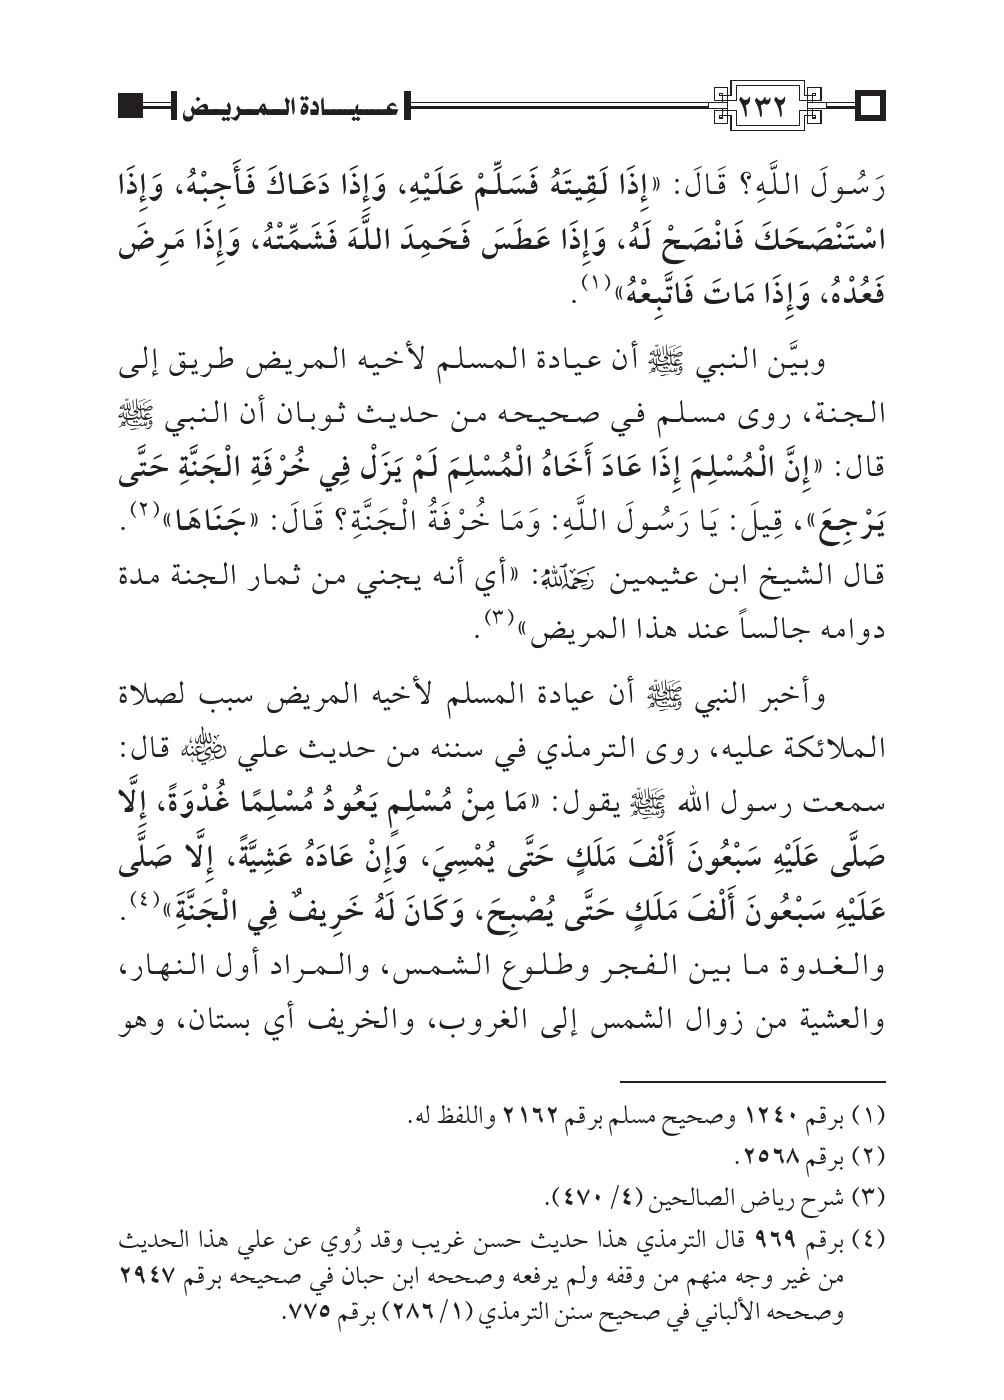 ٢٣٢ عـــيـــــادة الـمـــريـــض
رَسُولَ اللَّهِ؟ قَالَ: «إِذَا لَقِيتَهُ فَسَلِّمْ عَلَيْهِ، وَإِذَا دَعَاكَ فَأَجِبْهُ، وَإِذَا
اسْتَنْصَحَكَ فَانْصَحْ لَهُ، وَإِذَا عَطَسَ فَحَمِدَ اللَّهَ فَشَمِّتْهُ، وَإِذَا مَرِضَ
فَعُدْهُ، وَإِذَا مَاتَ فَاتَّبِعْهُ»(١).
وبيَّن النبي ﷺ أن عيادة المسلم لأخيه المريض طريق إلى
الجنة، روى مسلم في صحيحه من حديث ثوبان أن النبي ﷺ
قال: «إِنَّ الْمُسْلِمَ إِذَا عَادَ أَخَاهُ الْمُسْلِمَ لَمْ يَزَلْ فِي خُرْفَةِ الْجَنَّةِ حَتَّى
يَرْجِعَ»، قِيلَ: يَا رَسُولَ اللَّهِ: وَمَا خُرْفَةُ الْجَنَّةِ؟ قَالَ: «جَنَاهَا»(٢).
قال الشيخ ابن عثيمين رحمه الله: «أي أنه يجني من ثمار الجنة مدة
دوامه جالساً عند هذا المريض»(٣).
وأخبر النبي ﷺ أن عيادة المسلم لأخيه المريض سبب لصلاة
الملائكة عليه، روى الترمذي في سننه من حديث علي رضي الله عنه قال:
سمعت رسول الله ﷺ يقول: «مَا مِنْ مُسْلِمٍ يَعُودُ مُسْلِمًا غُدْوَةً، إِلَّا
صَلَّى عَلَيْهِ سَبْعُونَ أَلْفَ مَلَكٍ حَتَّى يُمْسِيَ، وَإِنْ عَادَهُ عَشِيَّةً، إِلَّا صَلَّى
عَلَيْهِ سَبْعُونَ أَلْفَ مَلَكٍ حَتَّى يُصْبِحَ، وَكَانَ لَهُ خَرِيفٌ فِي الْجَنَّةِ»(٤).
والغدوة ما بين الفجر وطلوع الشمس، والمراد أول النهار،
والعشية من زوال الشمس إلى الغروب، والخريف أي بستان، وهو
(١) برقم ١٢٤٠ وصحيح مسلم برقم ٢١٦٢ واللفظ له.
(٢) برقم ٢٥٦٨.
(٣) شرح رياض الصالحين (٤/ ٤٧٠).
(٤) برقم ٩٦٩ قال الترمذي هذا حديث حسن غريب وقد رُوي عن علي هذا الحديث
من غير وجه منهم من وقفه ولم يرفعه وصححه ابن حبان في صحيحه برقم ٢٩٤٧
وصححه الألباني في صحيح سنن الترمذي (١/ ٢٨٦) برقم ٧٧٥.